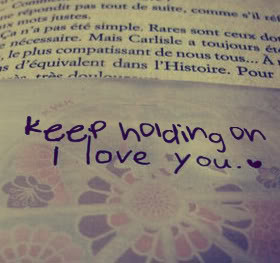 ne répondit pas tout de suite, comme s'il
mots justes.
Ça n'a pas été simple. Rares sont ceux do
nécessaire. Mais Carlisle a toujours ét
, le plus compatissant de nous tous... À
s d'équivalent dans l'Histoire. Pour
très
keep holding on
I love you.